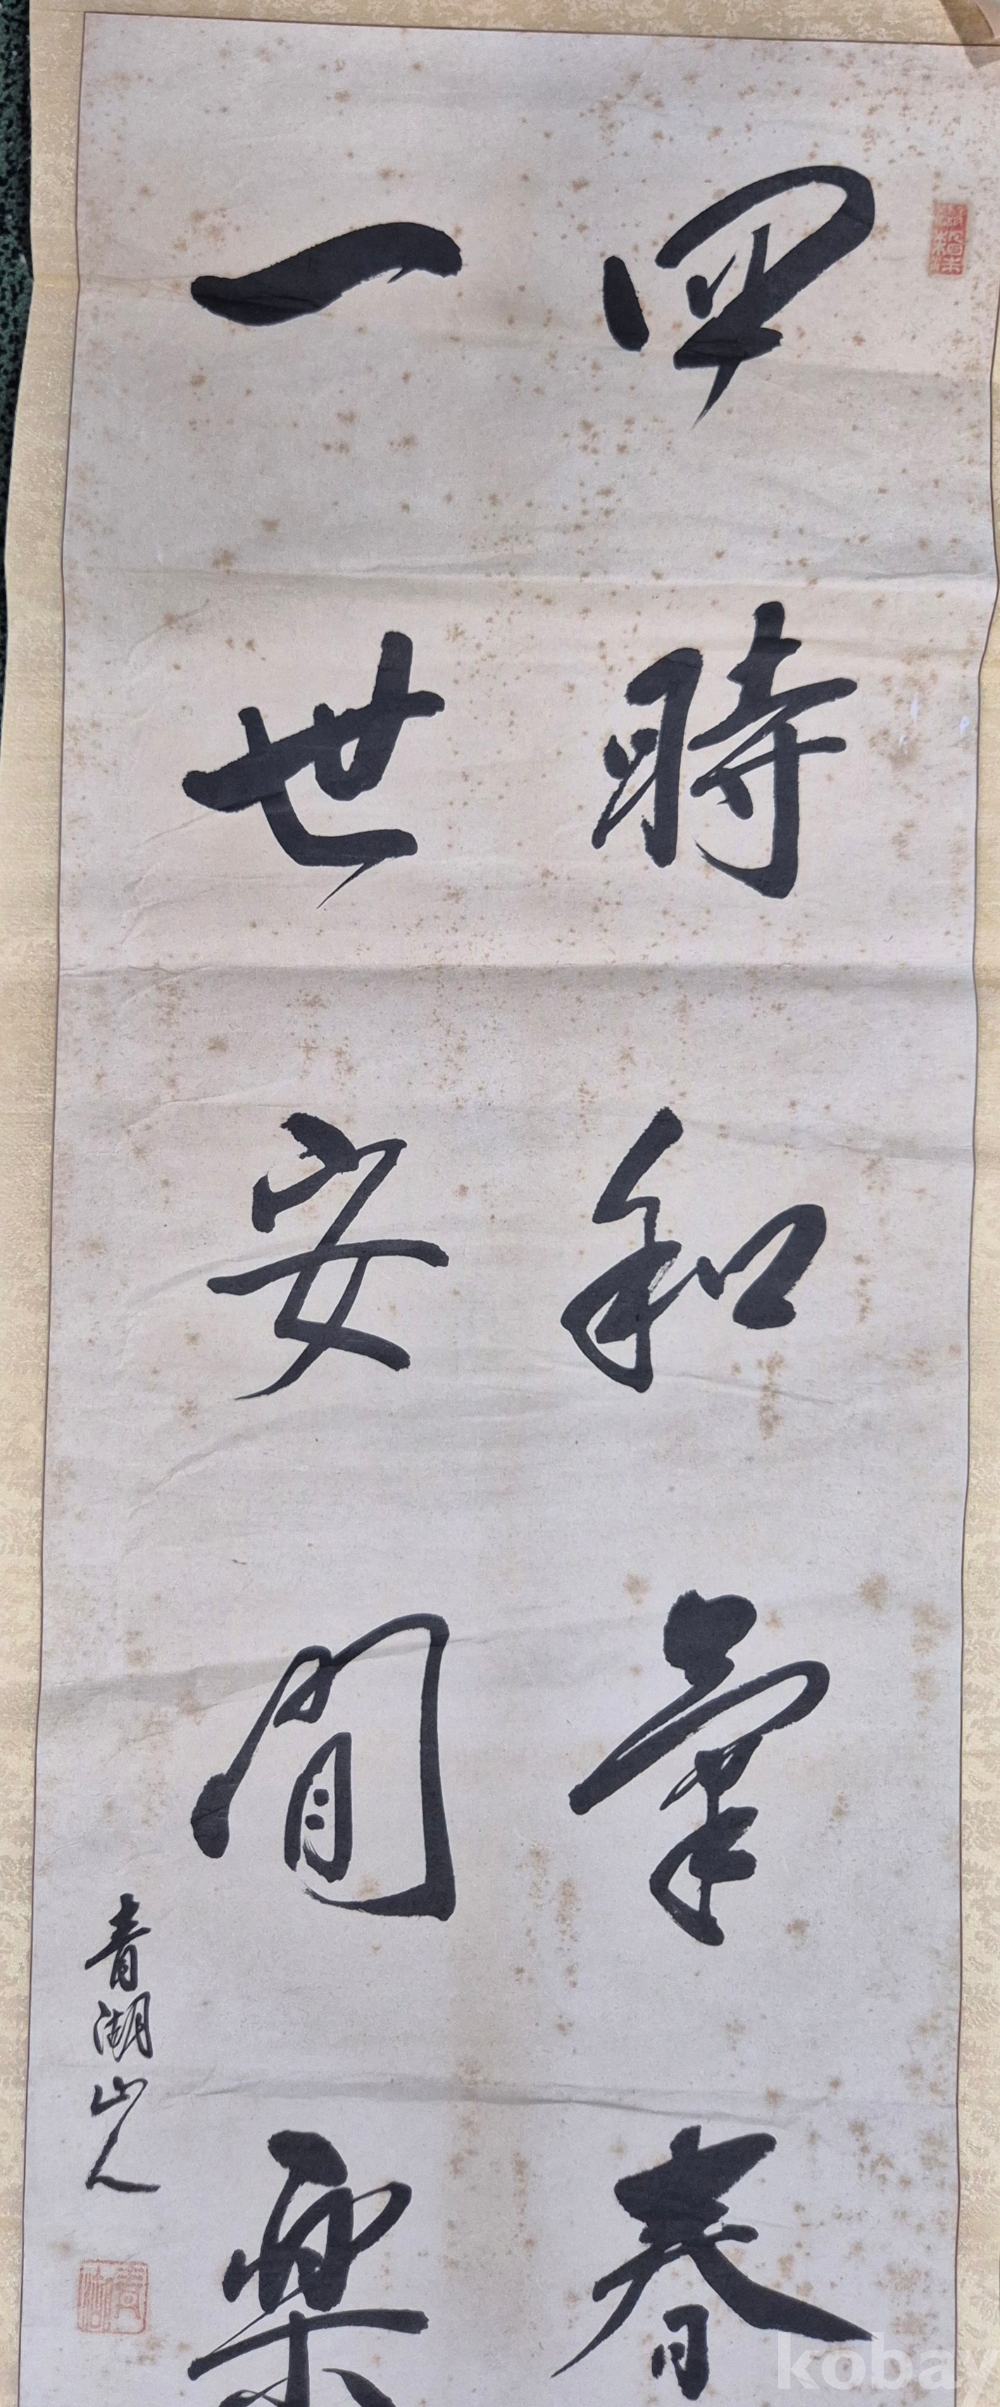 四時和氣春
一世安閒樂
青湖山人
kobay